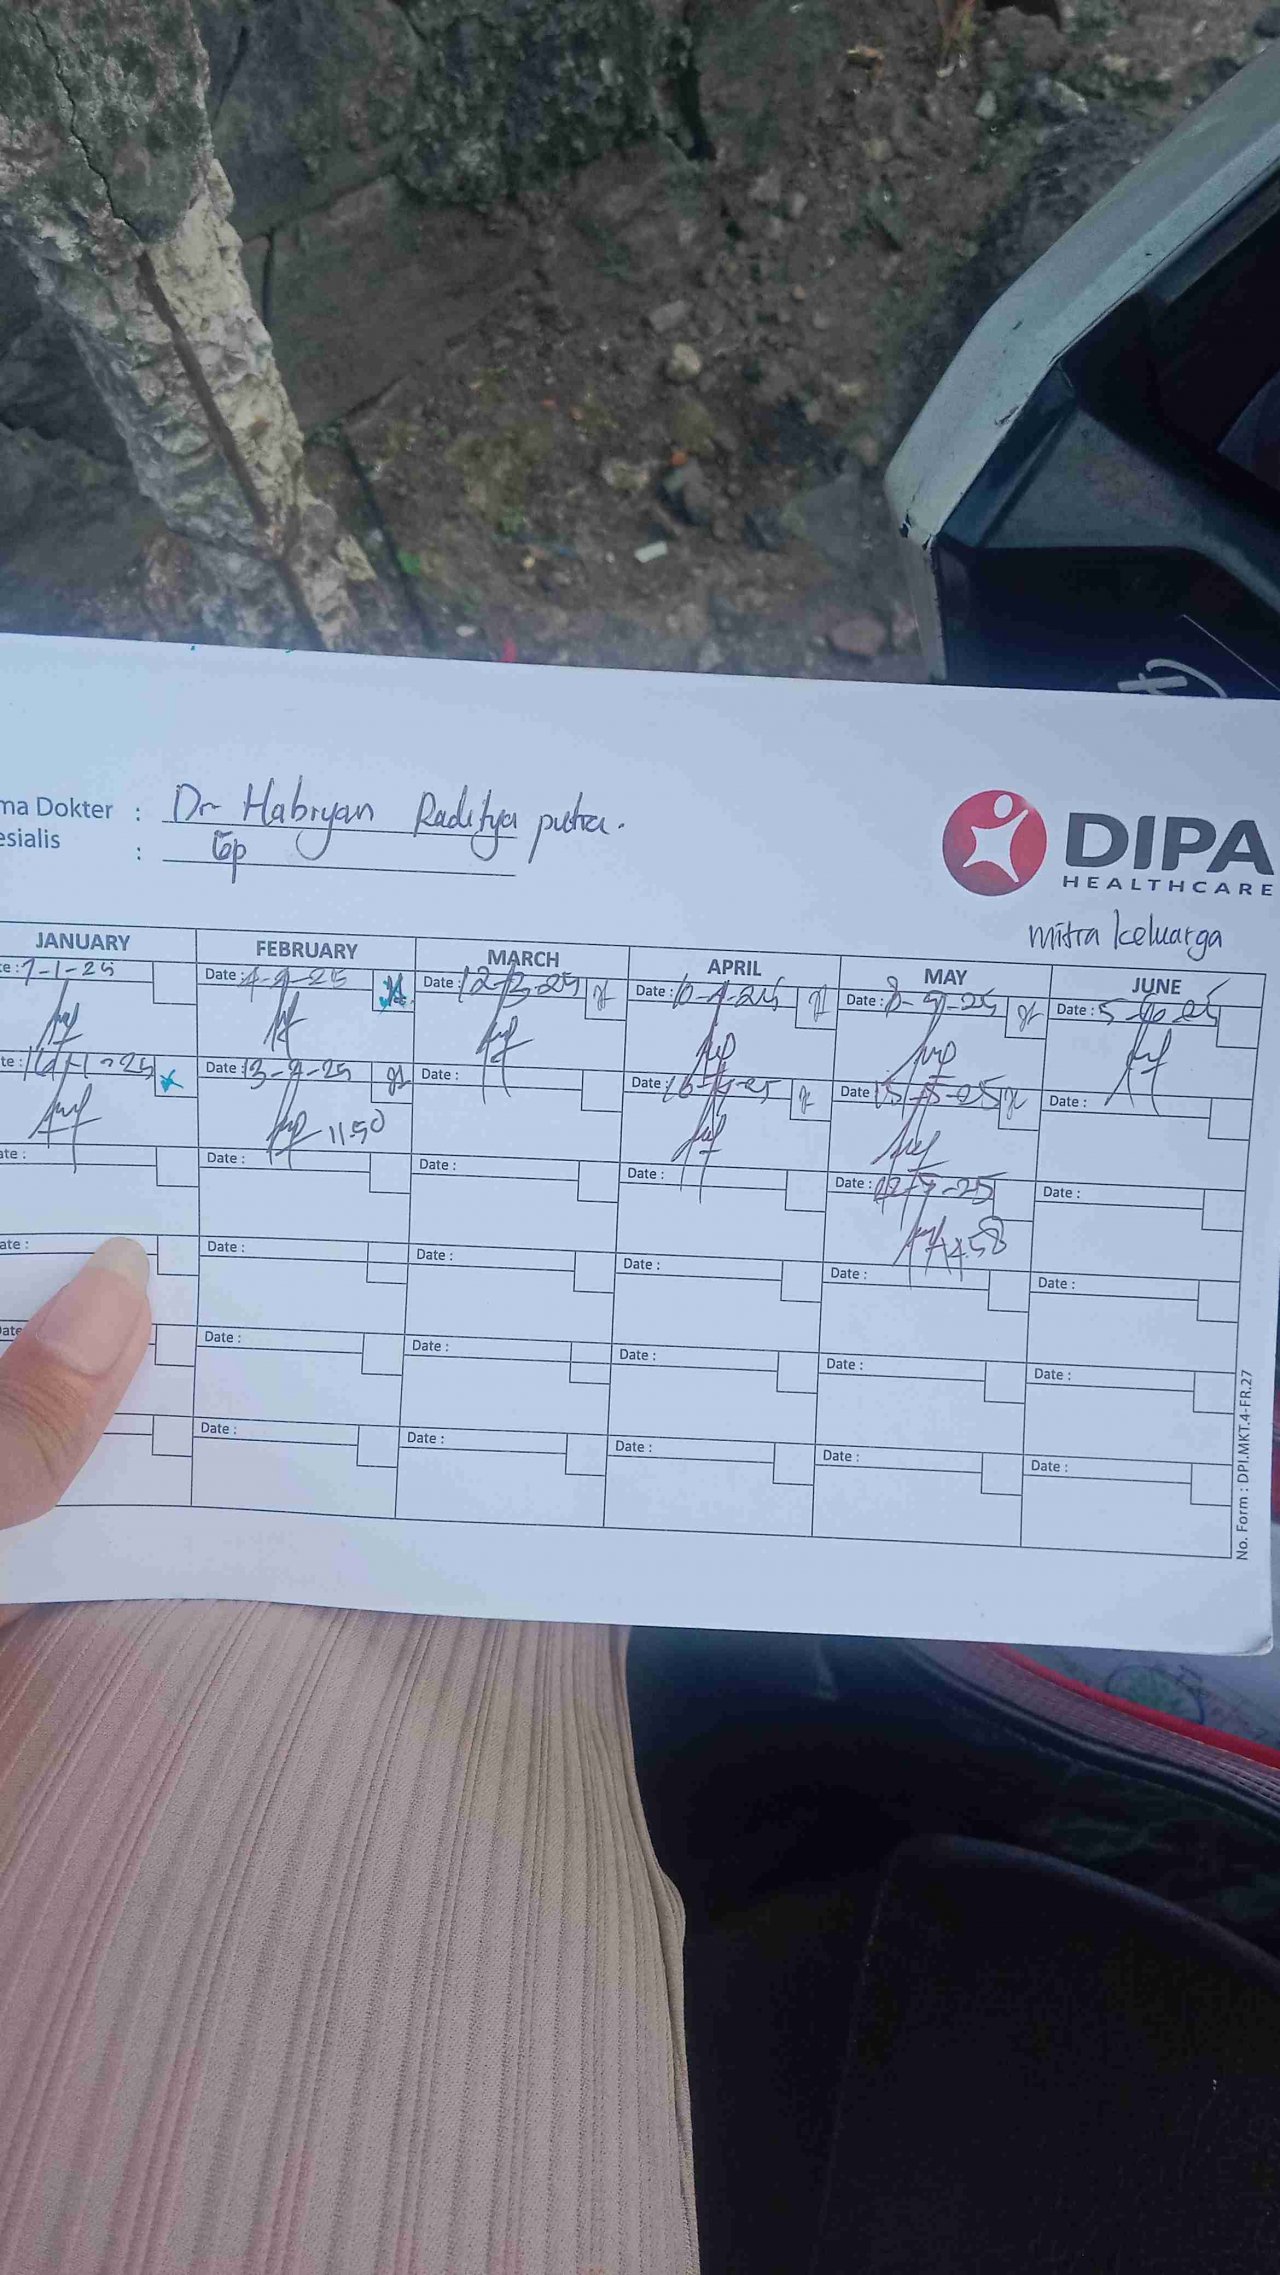 ma Dokter : Dr Habryan Raditya putra.
esialis : Gp
DIPA
HEALTHCARE
mitra keluarga
JANUARY FEBRUARY MARCH APRIL MAY JUNE
te : 7-1-25 Date : 4-2-25 Date : 12-3-25 Date : 10-4-25 Date : 8-5-25 Date : 5-6-25
te : 16-1-25 Date : 13-2-25 Date : Date : 16-4-25 Date : 15-5-25 Date :
11.50
ate : Date : Date : Date : Date : 22-5-25 Date :
14.58
ate : Date : Date : Date : Date : Date :
Date Date : Date : Date : Date : Date :
Date : Date : Date : Date : Date :
No. Form : DPI.MKT.4-FR.27